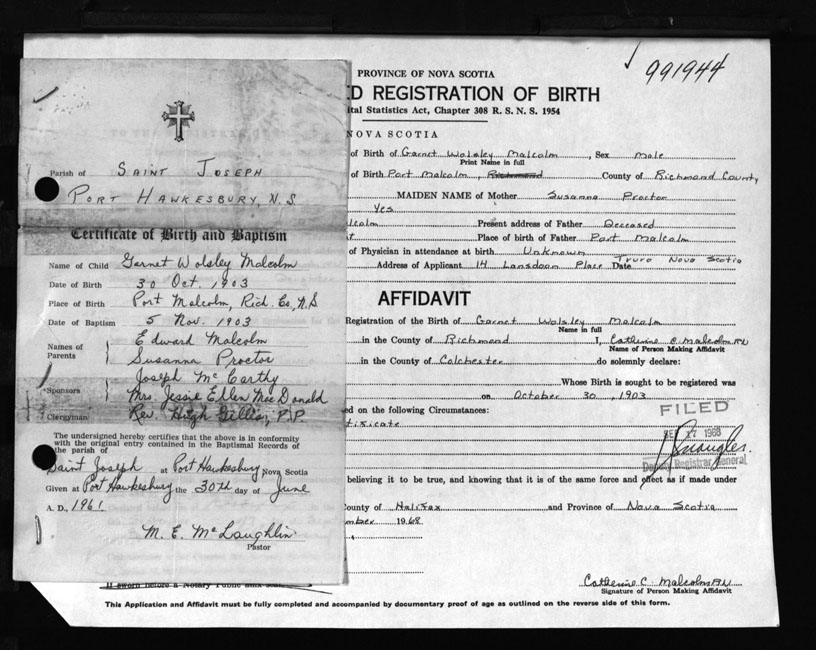 Parish of SAINT JOSEPH
PORT HAWKESBURY, N.S
Certificate of Birth and Baptism
Name of Child Garnet Wolsley Malcolm
Date of Birth 30 Oct. 1903
Place of Birth Port Malcolm, Rich. Co, N.S
Date of Baptism 5 Nov. 1903
Names of Parents Edward Malcolm
Susanna Proctor
Sponsors Joseph McCarthy
Mrs. Jessie Ellen MacDonald
Clergyman Rev. Hugh Gillis, P.P
The undersigned hereby certifies that the above is in conformity
with the original entry contained in the Baptismal Records of
the parish of
Saint Joseph at Port Hawkesbury Nova Scotia
Given at Port Hawkesbury the 30th day of June
A. D., 1961
M. E. McLaughlin
Pastor
991944
PROVINCE OF NOVA SCOTIA
D REGISTRATION OF BIRTH
ital Statistics Act, Chapter 308 R. S. N. S. 1954
NOVA SCOTIA
of Birth of Garnet Wolsley Malcolm, Sex Male
Print Name in full
of Birth Port Malcolm, Richmond County of Richmond County
MAIDEN NAME of Mother Susanna Proctor
Yes
lcolm Present address of Father Deceased
t Place of birth of Father Port Malcolm
of Physician in attendance at birth Unknown
Address of Applicant 14 Lansdown Place Truro Nova Scotia Date
AFFIDAVIT
Registration of the Birth of Garnet Wolsley Malcolm
Name in full
in the County of Richmond I, Catherine C. Malcolm RN
Name of Person Making Affidavit
in the County of Colchester do solemnly declare:
Whose Birth is sought to be registered was
on October 30, 1903
FILED
ed on the following Circumstances:
tificate
SEP 17 1968
Deputy Registrar General
believing it to be true, and knowing that it is of the same force and effect as if made under
County of Halifax and Province of Nova Scotia
mber 1968
Catherine C. Malcolm RN
Signature of Person Making Affidavit
If sworn before a Notary Public
This Application and Affidavit must be fully completed and accompanied by documentary proof of age as outlined on the reverse side of this form.